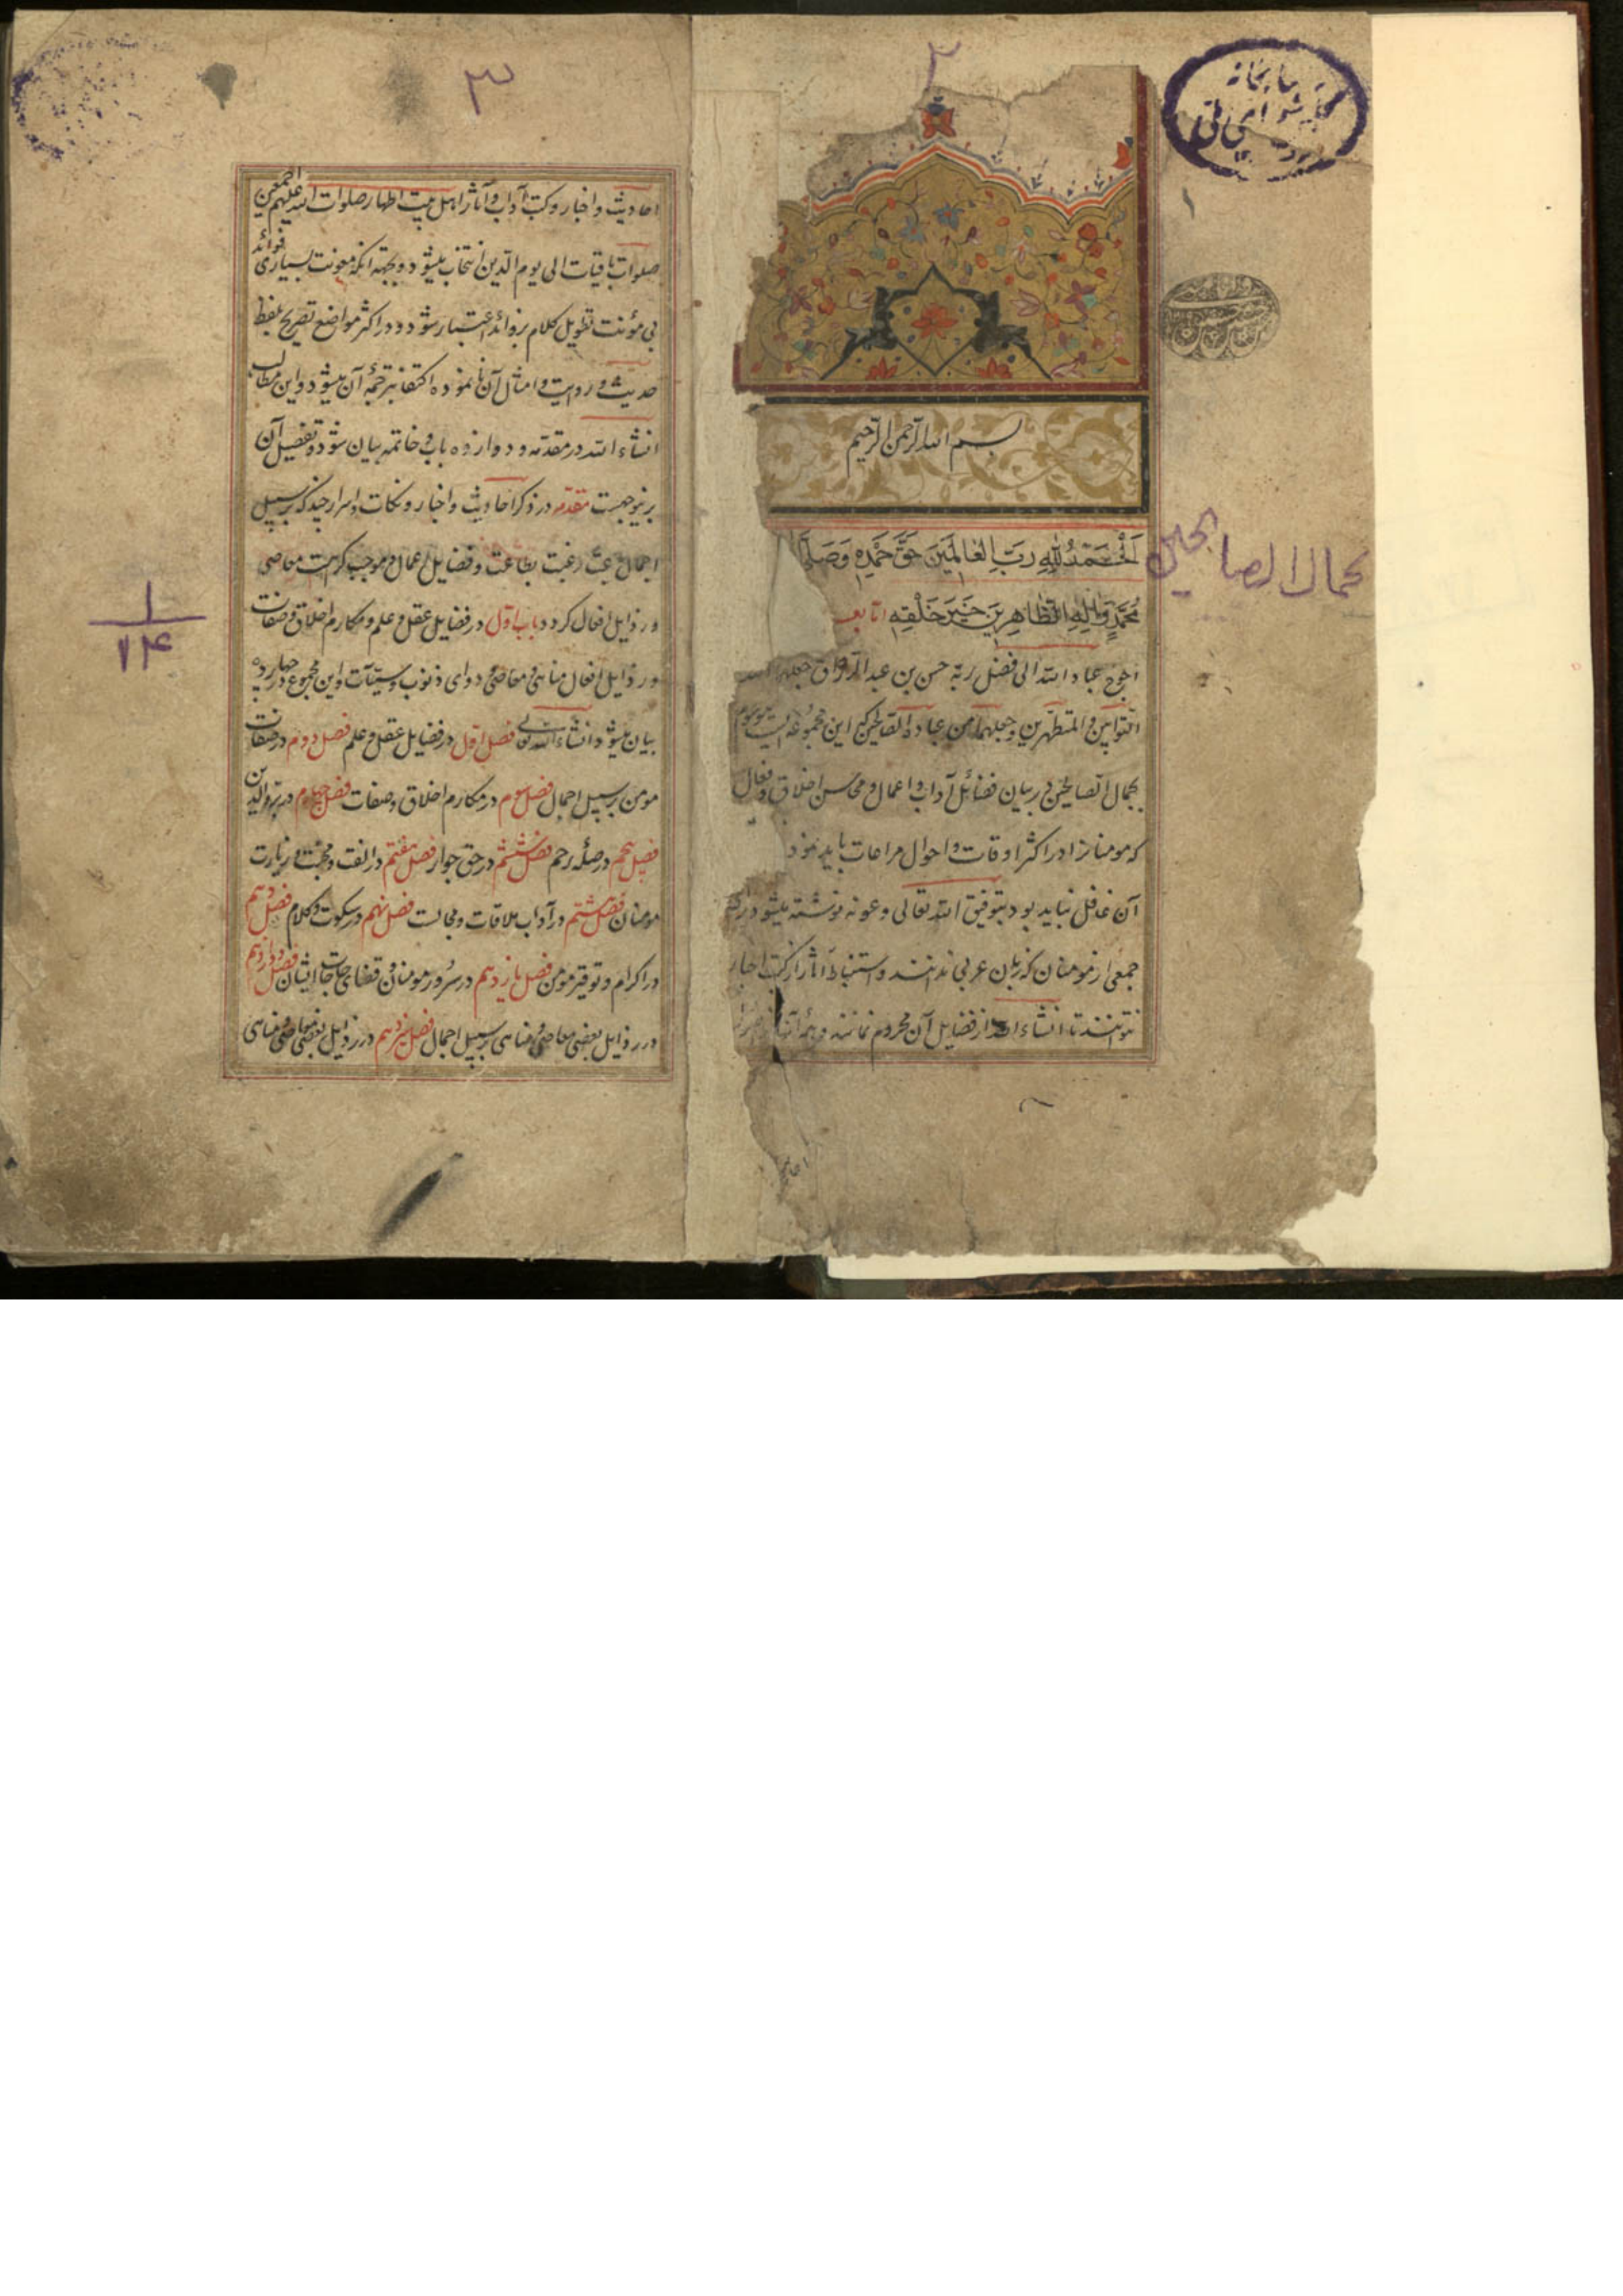 ۲
بسم الله الرحمن الرحیم
اَلْحَمْدُ لِلّٰهِ رَبِّ الْعٰالَمینَ حَقَّ حَمْدِهِ وَصَلَّی
مُحَمَّدٍ وَاٰلِهِ الطّٰاهِرینَ خَیْرَ خَلْقِهِ اما بعد
احوج عباد الله الی فضل ربّه حسن بن عبد الرزاق جعلهما الله
التوابین و المتطهرین و جعلهما من عباده الصالحین که این مجموعه ایست موسوم
بجمال الصالحین در بیان فضائل آداب و اعمال و محاسن اخلاق و افعال
که مومنانرا در اکثر اوقات و احوال مراعات باید نمود
آن غافل نباید بود بتوفیق الله تعالی و عونه نوشته میشود
جمعی از مومنان که زبان عربی ندانند و استنباط آثار از کتب اخبار
نتوانند تا انشاء الله از فضایل آن محروم نمانند و
جمال الصالحین
۱
۳
احادیث و اخبار و کتب آداب و آثار اهل بیت اطهار صلوات الله علیهم اجمعین
صلوات باقیات الی یوم الدین انتخاب میشود و بجهته آنکه معونت بسیاری فوائد
بی مؤنت تطویل کلام بزوائد اعتبار شود و در اکثر مواضع تصریح بلفظ
حدیث و روایت و امثال آن نانموده اکتفا بترجمهٔ آن میشود و این مطالب
انشاء الله در مقدمه و دوازده باب و خاتمه بیان شود و تفصیل آن
برینوجهست مقدمه در ذکر احادیث و اخبار و نکات و اسرار چند که بر سبیل
اجمال رغبت بطاعت و فضایل اعمال و موجب کراهت معاصی
و رذایل افعال کردد باب اول در فضایل عقل و علم و مکارم اخلاق و صفات
و رذایل افعال مناهی و معاصی و دوای ذنوب و سیّئات و این مجموع در چهارده
بیان میشود انشاء الله تعالی فصل اول در فضایل عقل و علم فصل دوم در صفات
مومن بر سبیل اجمال فصل سوم در مکارم اخلاق و صفات فصل چهارم در برّ والدین
فصل پنجم در صلهٔ رحم فصل ششم در حق جوار فصل هفتم در الفت و محبت و زیارت
مومنان فصل هشتم در آداب ملاقات و مجالست فصل نهم در سکوت و کلام فصل دهم
در اکرام و توقیر مومن فصل یازدهم در سرور مومنان و قضای حاجات ایشان فصل دوازدهم
در رذایل بعضی معاصی و مناهی بر سبیل اجمال فصل سیزدهم در رذایل بعضی معاصی و مناهی
۱
۱۴